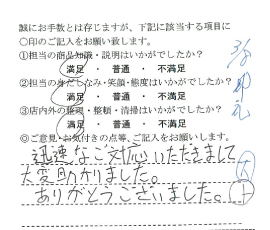 誠にお手数とは存じますが、下記に該当する項目に
○印のご記入をお願い致します。
①担当の商品知識・説明はいかがでしたか？
満足 ・ 普通 ・ 不満足
②担当の身だしなみ・笑顔・態度はいかがでしたか？
満足 ・ 普通 ・ 不満足
③店内外の整理・整頓・清掃はいかがでしたか？
満足 ・ 普通 ・ 不満足
◎ご意見・お気付きの点等、ご記入をお願いします。
迅速なご対応いただきまして
大変助かりました。
ありがとうございました。